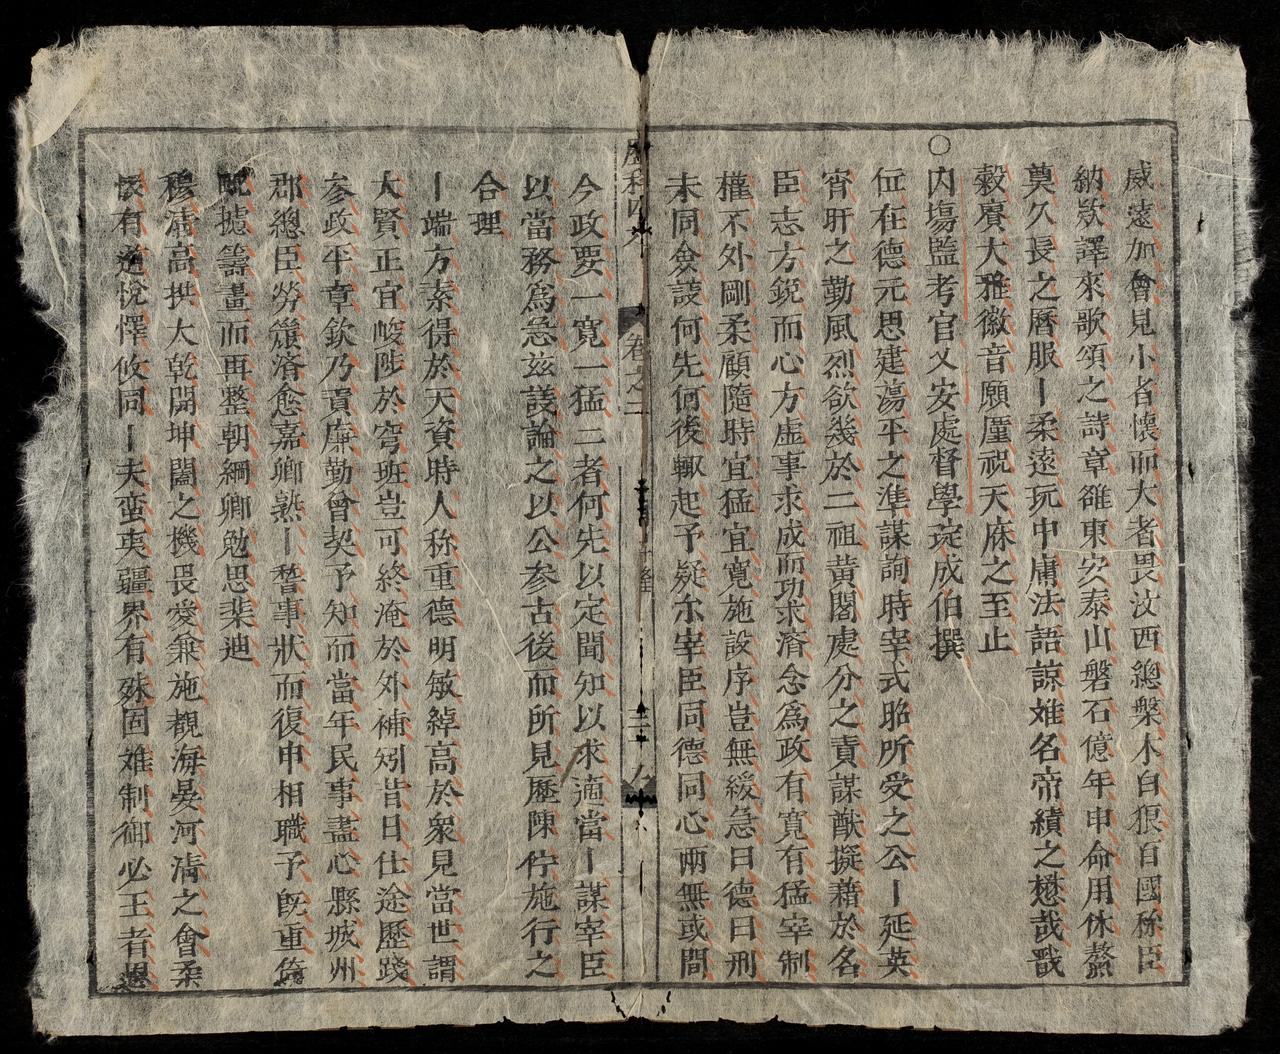 威遠加會見小者懷而大者畏汶西總槃木白狼百國称臣
納欵譯來歌頌之詩章雒東安泰山磐石億年申命用休鰲
奠久長之曆服丨柔遠玩中庸法語諒难名帝績之懋哉戬
穀賡大雅徽音願廑祝天庥之至止
○内塲監考官乂安處督學定成伯撰
位在德元思建蕩平之準謀詢時宰式昭所受之公丨延英
宵旰之勤風烈欲幾於二祖黄閣處分之責謀猷擬藉於名
臣志方銳而心方虚事求成而功求済念爲政有寛有猛宰制
權不外剛柔顧隨時宜猛宜寛施設序豈無緩急曰德曰刑
未同僉議何先何後輙起予疑尓宰臣同德同心兩無或間
卷之二
今政要一寛一猛二者何先以定聞知以求適當丨謀宰臣
以當務爲急玆議論之以公参古後而所見歷陳佇施行之
合理
丨端方素得於天資時人称重德明敏綽高於衆見當世謂
大賢正宜峻陟於穹班豈可終淹於外補矧昔日仕途歷踐
参政平章欽乃責庸勤曾契予知而當年民事盡心縣城州
郡總臣勞蹟済愈嘉卿熟丨啓事狀而復申相職予既重倚
毗攄籌畫而再整朝綱卿勉思棐迪
穆清高拱大乾開坤闔之機畏愛兼施覩海晏河清之會柔
懷有道悅懌攸同丨夫蛮夷疆界有殊固难制御必王者恩